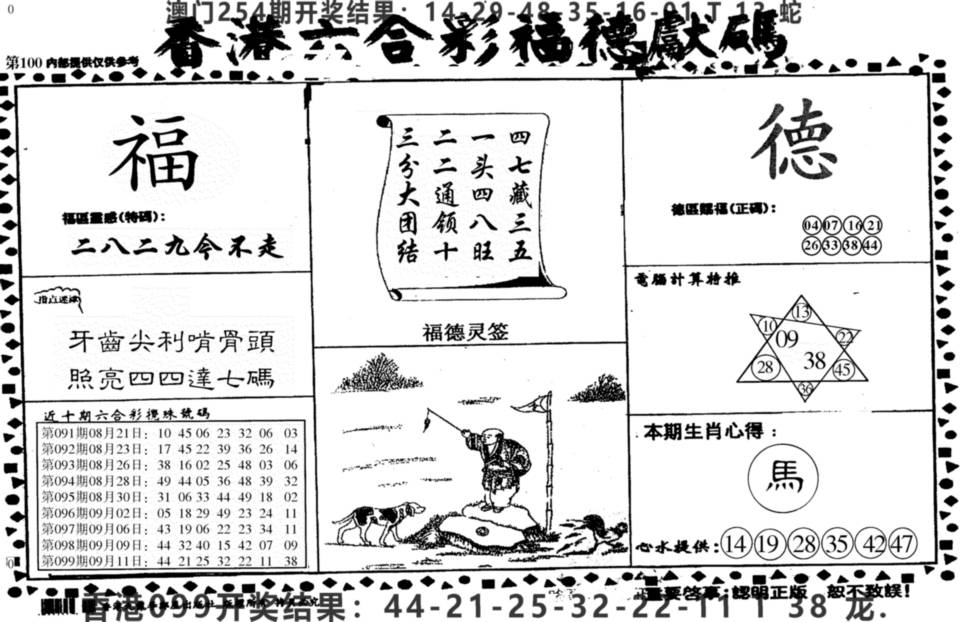 澳门254期开奖结果：14-29-48-35-16-01 T 13 蛇
香港六合彩福德獻碼
第100 内部提供仅供参考
福
福區靈感(特碼)：
二八二九今不走
指点迷津
牙齒尖利啃骨頭
照亮四四達七碼
近十期六合彩攪珠號碼
第091期08月21日：10 45 06 23 32 06 03
第092期08月23日：17 45 22 39 36 26 14
第093期08月26日：38 16 02 25 48 03 06
第094期08月28日：49 44 05 36 48 39 32
第095期08月30日：31 06 33 44 49 18 02
第096期09月02日：05 18 29 49 23 24 11
第097期09月06日：43 19 06 22 23 34 11
第098期09月09日：44 32 40 15 42 07 09
第099期09月11日：44 21 25 32 22 11 38
四七藏三五
一头四八旺
二二通领十
三分大团结
福德灵签
德
德區賜福(正碼)：
04 07 16 21
26 33 38 44
電腦計算特推
13
10 09 22
28 38 45
36
本期生肖心得：
馬
心水提供：14 19 28 35 42 47
重要啓事：認明正版 恕不致誤！
香港099开奖结果：44-21-25-32-22-11 T 38 龙.